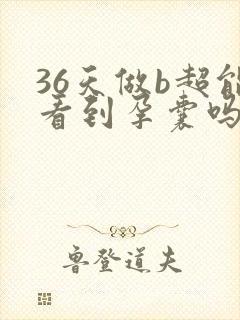 36天做b超能
看到孕囊吗
鲁登道夫